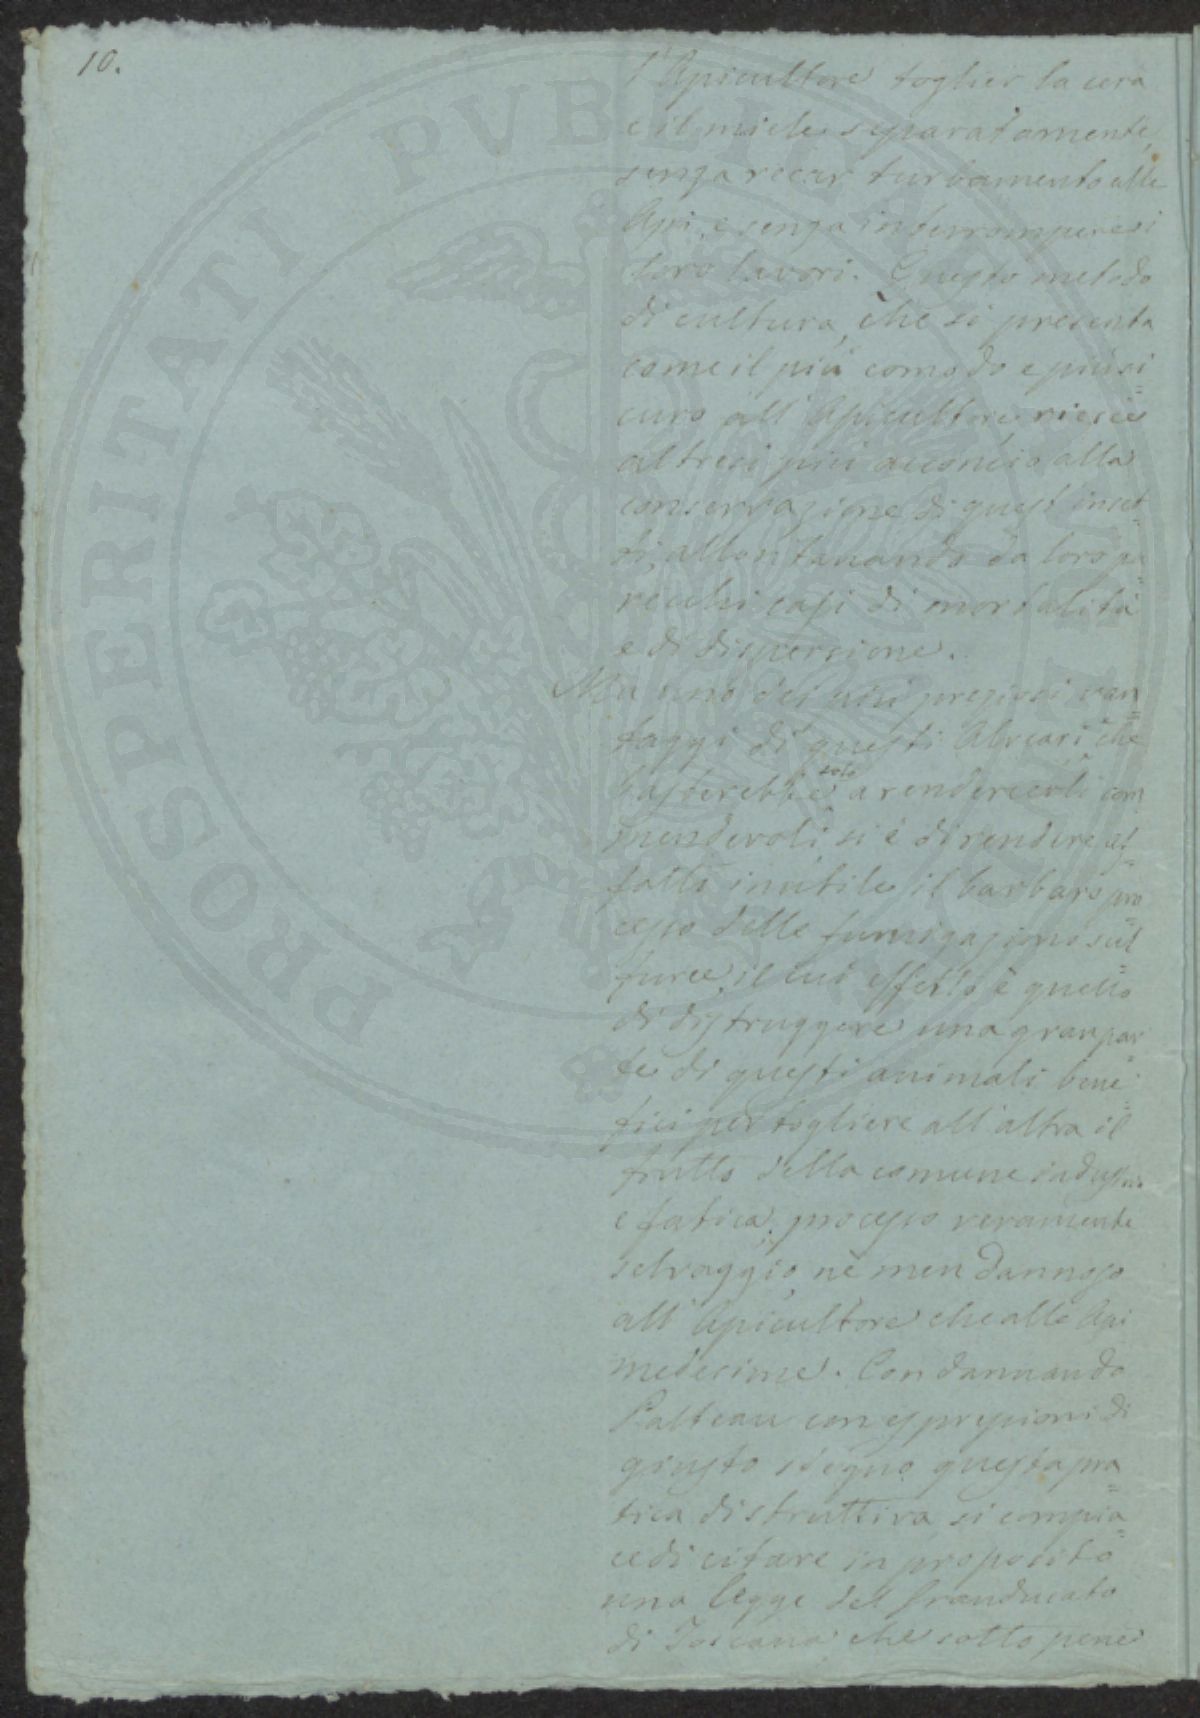 10.
l'Apicultore toglier la cera
e il miele separatamente,
senza recar turbamento alle
Api, e senza interrompere i
loro lavori. Questo metodo
di cultura, che si presenta
come il più comodo e più si=
curo all'Apicultore riesce
altresì più acconcio alla
conservazione di quest'inset=
ti, allontanando da loro pa=
recchi capi di mortalità
e di dispersione.
Ma uno dei più preziosi van=
taggi di questi Alveari, che
basterebbe solo a renderceli com
mendevoli, si è di rendere af=
fatto inutile il barbaro pro=
cesso delle fumigazioni sul=
furee, il cui effetto è quello
di distruggere una gran par=
te di questi animali bene=
fici per togliere all'altra il
frutto della comune industria
e fatica; processo veramente
selvaggio, nè men dannoso
all'Apicultore che alle Api
medesime. Condannando
Palteau con espressioni di
giusto sdegno questa pra=
tica distruttiva si compia=
ce di citare in proposito
una legge del Granducato
di Toscana che sotto pene
PROSPERITATI PUBLICAE